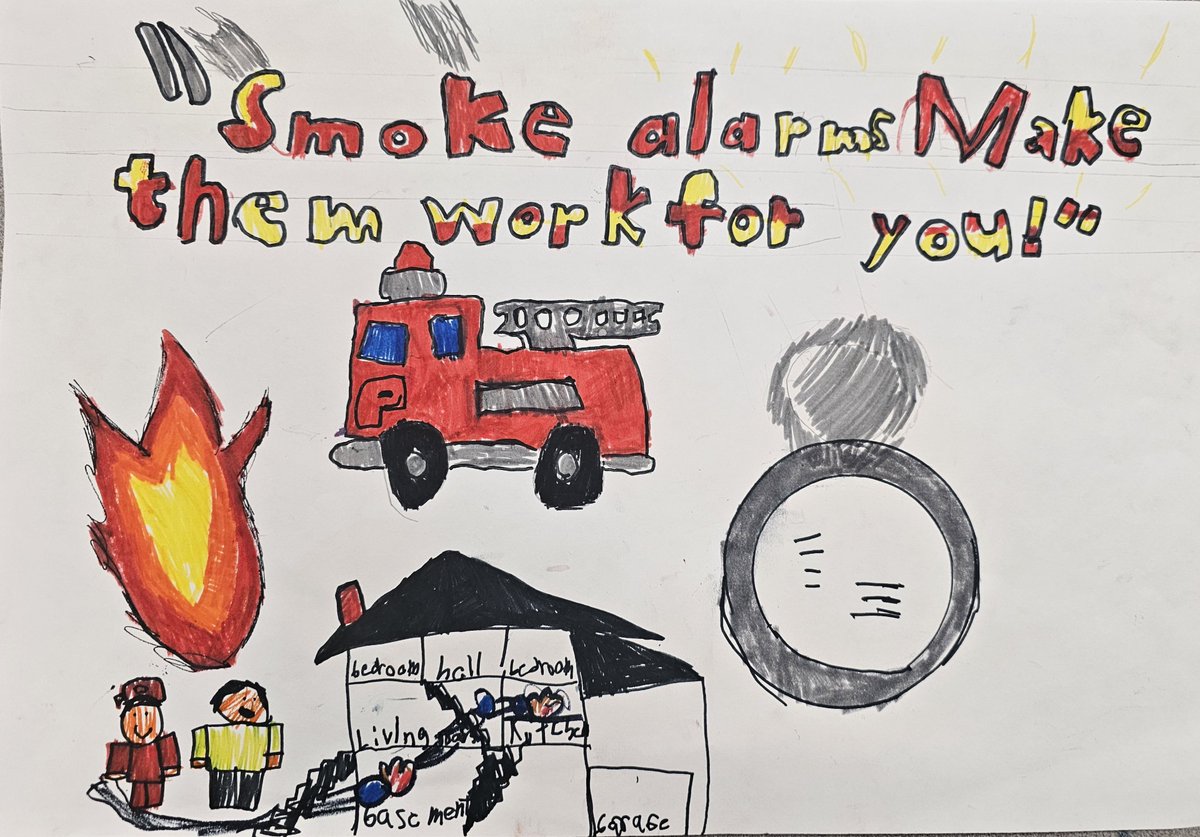 "Smoke alarms Make
them work for you!"
P
bedroom hall bedroom
Living
basemen
garage